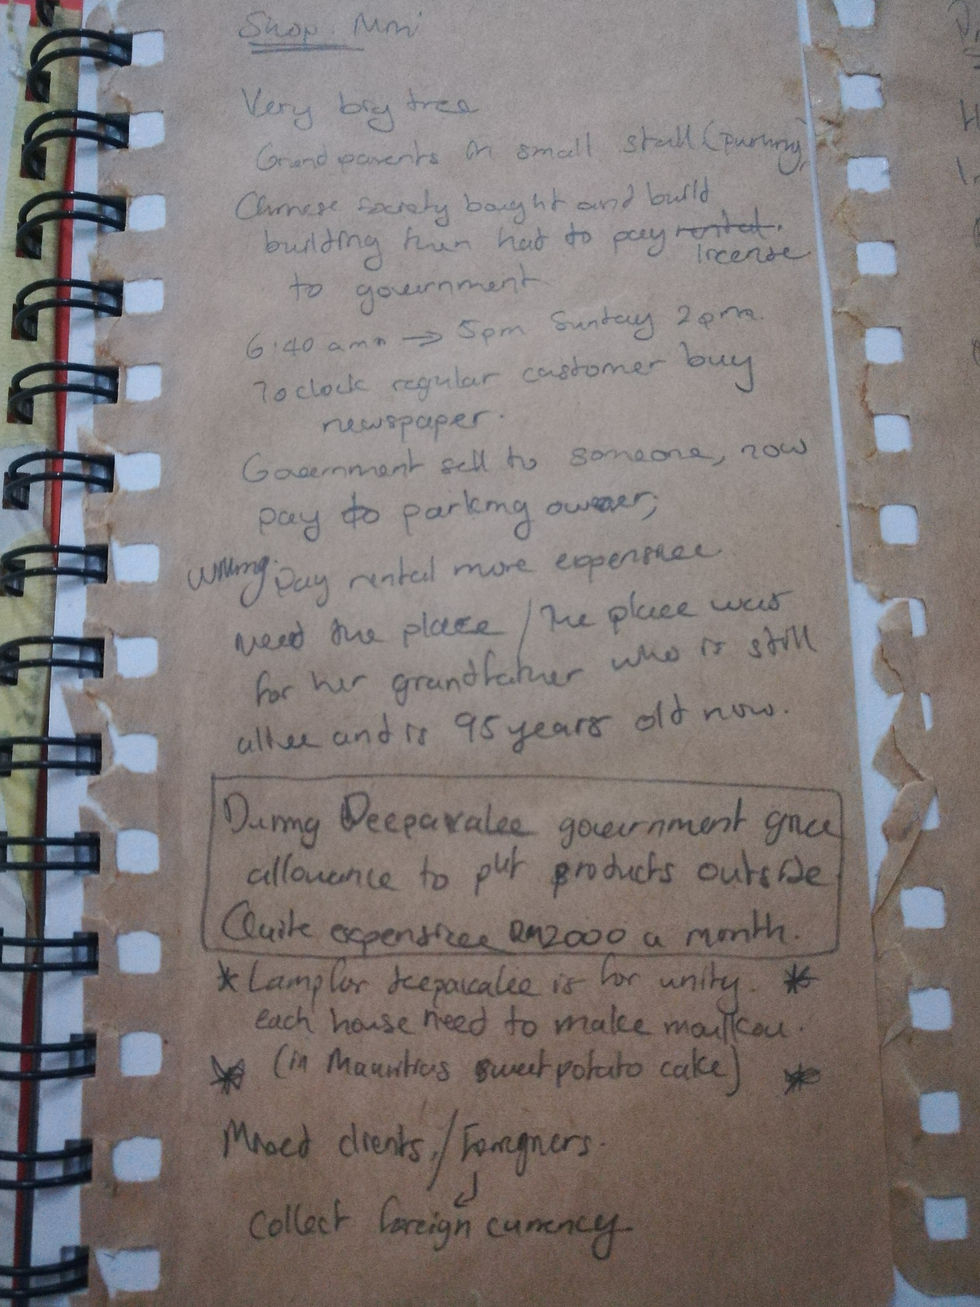 Shop Mni
Very big tree
Grandparents in small stall (
Chinese society bought and build
building then had to pay rental.
license
to government.
6:40 am → 5pm Sunday 2pm.
7o clock regular customer buy
newspaper.
Government sell to someone, now
pay to parking owner;
pay rental more expensive
need the place / The place was
for her grandfather who is still
alive and is 95 years old now.
During Deepavalee government give
allowance to put products outside
Quite expensive RM2000 a month.
* Lamp for deepavalee is for unity. *
each house need to make moulkou.
* (in Mauritius sweet potato cake) *
Mixed clients, / Foreigners.
↓
Collect foreign currency.